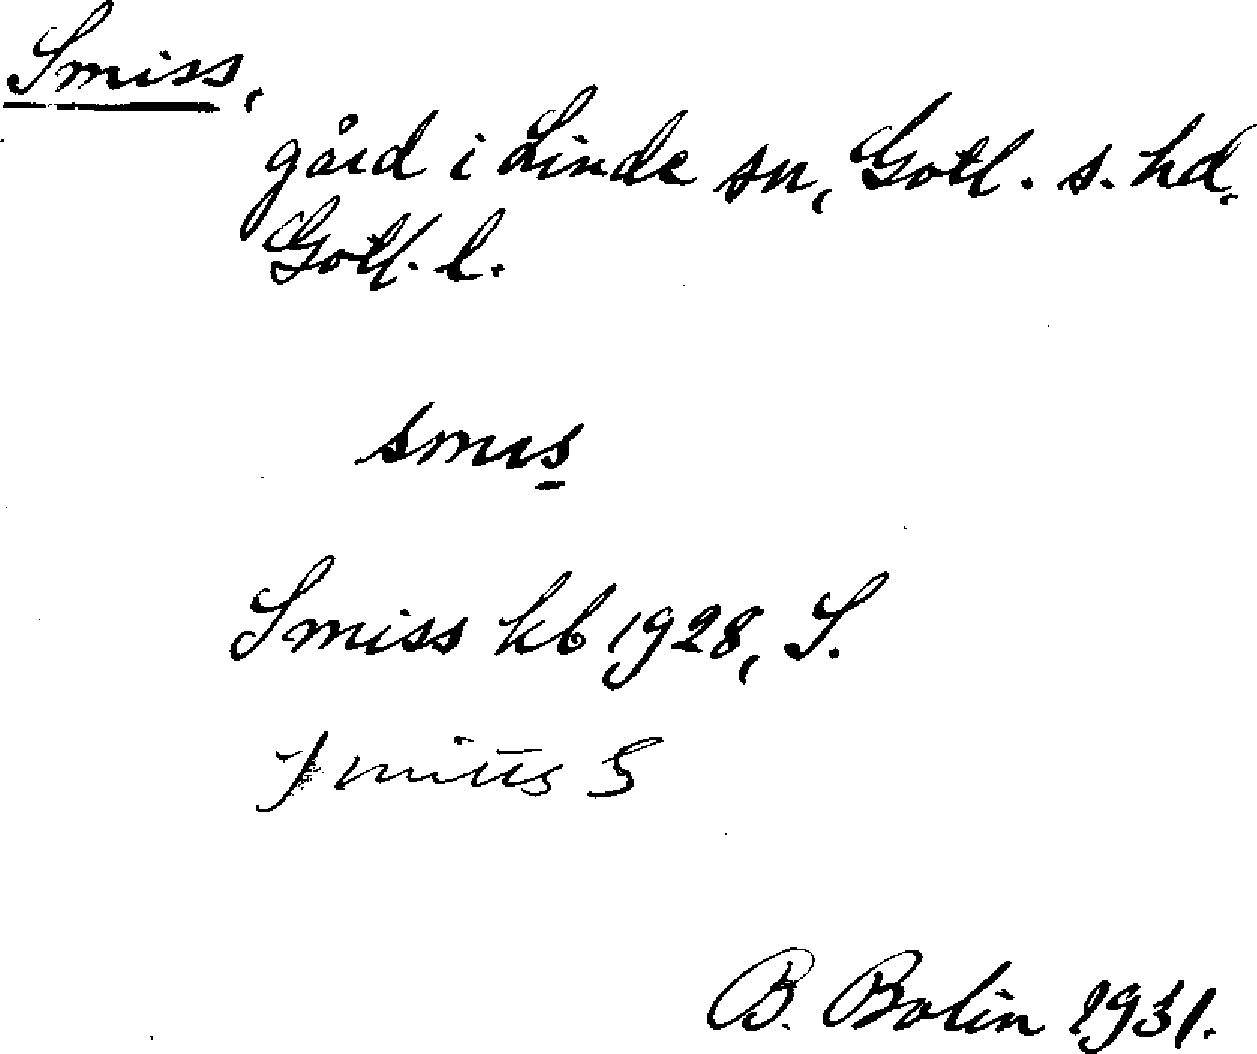 Smiss,
gård i Linde sn, Gotl. s. hd.
Gotl. l.
smɩs̲
Smiss kb 1928, S.
S
B. Bolin 1931.